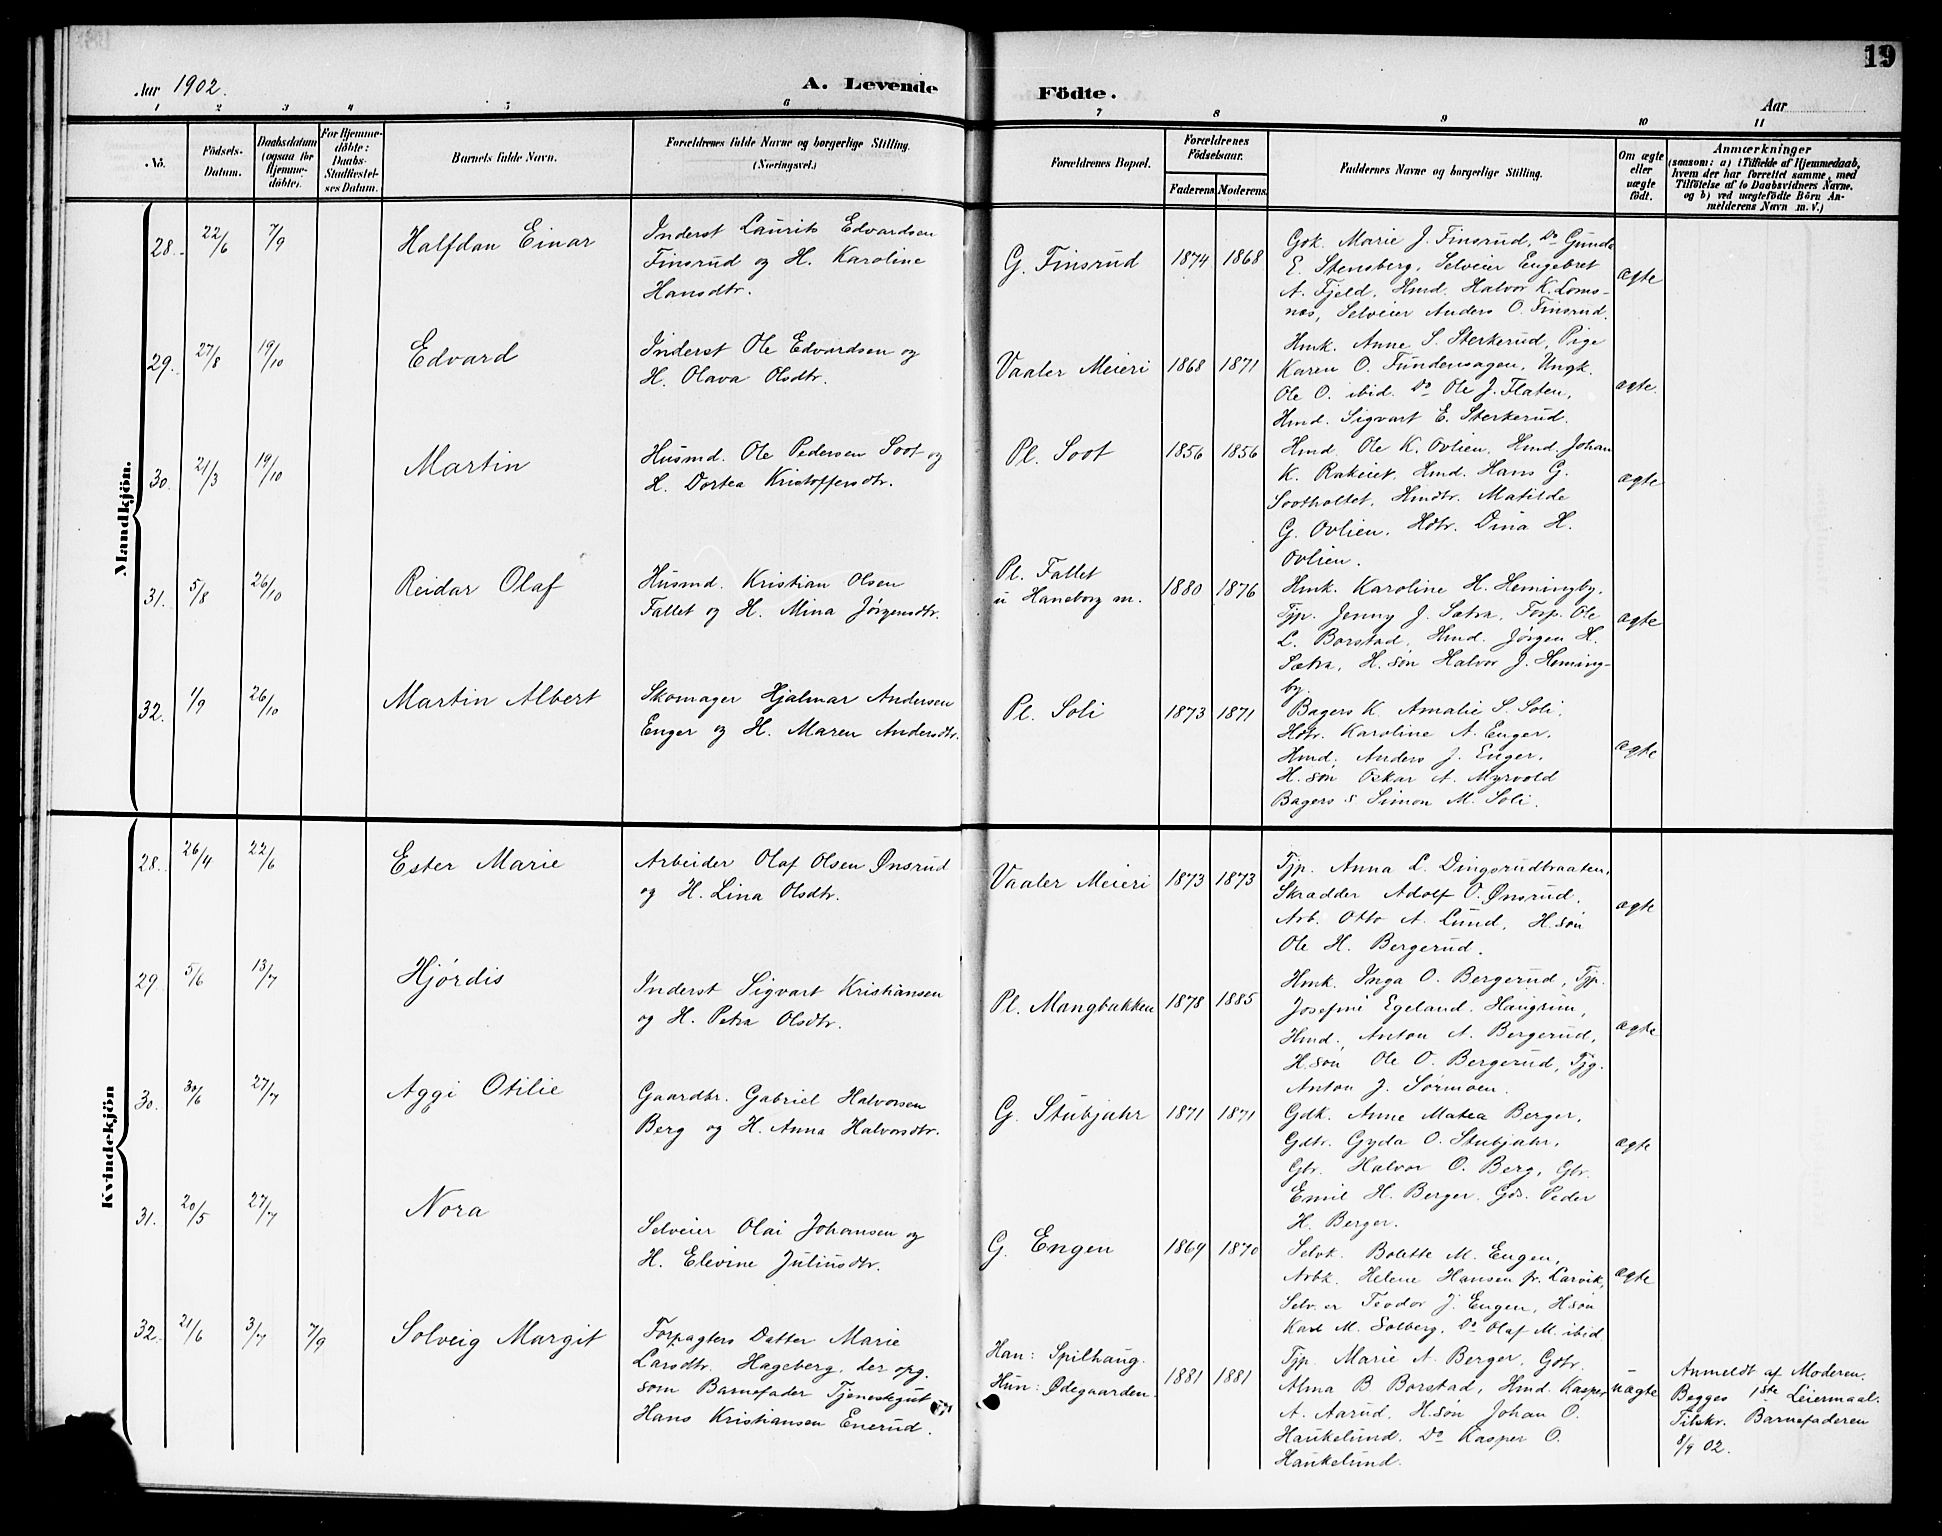 19
Aar 1902.
A. Levende Födte.
Aar
1 2 3 4 5 6 7 8 9 10 11
No.
Födsels-
Datum.
Daabsdatum
(ogsaa for
Hjemme-
döbte).
For Hjemme-
döbte:
Daabs-
Stadfæstel-
ses Datum.
Barnets fulde Navn.
Forældrenes fulde Navne og borgerlige Stilling.
(Næringsvei.)
Forældrenes Bopæl.
Forældrenes
Födselsaar.
Faderens. Moderens.
Faddernes Navne og borgerlige Stilling.
Om ægte
eller
uægte
født.
Anmærkninger
(saasom: a) i Tilfælde af Hjemmedaab,
hvem der har forrettet samme, med
Tilföielse af to Daabsvidners Navne,
og b) ved uægtefödte Börn An-
melderens Navn m. v.)
Mandkjön.
28. 22/6 7/9 Halfdan Einar
Inderst Laurits Edvardsen
Finsrud og H. Karoline
Hansdtr.
G. Finsrud 1874 1868
Gok. Marie J. Finsrud, Do Gunda
E. Stensberg, Selveier Engebret
A. Fjeld, Hmd. Halvor K. Loms-
næs, Selveier Anders O. Finsrud.
ægte
29. 27/8 19/10 Edvard
Inderst Ole Edvardsen og
H. Olava Olsdtr.
Vaaler Meieri 1868 1871
Hmk. Anne S. Sterkerud, Pige
Karen O. Tundensagen, Ungk.
Ole O. ibid. Do Ole J. Flaten,
Hmd. Sigvart E. Sterkerud.
ægte.
30. 21/3 19/10 Martin
Husmd. Ole Pedersen Soot og
H. Dortea Kristoffersdtr.
Pl. Soot 1856 1856
Hmd. Ole K. Ovlien, Hmd. Johan
K. Rakeiet, Hmd. Hans G.
Sootholtet, Hmdtr. Matilde
G. Ovlien, Hdtr. Dina H.
Ovlien.
ægte
31. 5/8 26/10 Reidar Olaf
Husmd. Kristian Olsen
Fallet og H. Mina Jørgensdtr.
Pl. Fallet
u Haneborg m. 1880 1876
Hmk. Karoline H. Hemingby,
Tjp. Jenny J. Sætra, Forp. Ole
L. Borstad, Hmd. Jørgen H.
Sætra, H. søn Halvor J. Heming-
by.
ægte
32. 1/9 26/10 Martin Albert
Skomager Hjalmar Andersen
Enger og H. Maren Andersdtr.
Pl. Soli 1873 1871
Bagers K. Amalie S. Soli,
Hdtr. Karoline A. Enger,
Hmd. Anders J. Enger,
H. søn Oskar A. Myrvold
Bagers s Simon M. Soli.
ægte
Kvindekjön
28. 26/4 22/6 Ester Marie
Arbeider Olaf Olsen Ønsrud
og H. Lina Olsdtr.
Vaaler Meieri 1873 1873
Tjp. Anna L. Dingsrudbraaten,
Skrædder Adolf O. Ønsrud,
Arb. Otto A. Lund, H. søn
Ole H. Bergerud.
ægte
29 5/6 13/7 Hjørdis
Inderst Sigvart Kristiansen
og H. Petra Olsdtr.
Pl. Mangbakken 1878 1885
Hmk. Inga O. Bergerud, Tjp.
Josefine Egeland, Haugrim,
Hmd. Anton A. Bergerud,
H. søn Ole O. Bergerud, Tjg.
Anton J. Sørmoen.
ægte
30. 30/6 27/7 Aggi Otilie
Gaardbr. Gabriel Halvorsen
Berg og H. Anna Halvorsdtr.
G. Stubjahr 1871 1871
Gdk. Anne Matea Berger,
Gdtr. Gyda O. Stubjahr,
Gbr. Halvor O. Berg, Gbr.
Emil H. Berger, Gds. Peder
H. Berger.
ægte
31. 20/5 27/7 Nora
Selveier Olai Johansen og
H. Elevine Juliusdtr.
G. Engen 1869 1870
Selvk. Bolette M. Engen,
Arbk. Helene Hansen fr. Larvik,
Selv. er Teodor J. Engen, H søn
Karl M. Solberg, Do Olaf M. ibid
ægte
32. 21/6 3/7 7/9 Solveig Margit
Forpagters Datter Marie
Larsdtr. Hageberg, der opg.
som Barnefader Tjenestegut
Hans Kristiansen Enerud.
Han: Spilhaug.
Hun: Ødegaarden. 1881 1881
Tjp. Marie A. Berger, Gdtr.
Alma B. Borstad, Hmd. Kasper
A. Aarud, H. søn Johan O.
Haukelund, Do Kasper O.
Haukelund.
uægte
Anmeldt af Moderen.
Begges 1ste Leiermaal.
Tilskr. Barnefaderen
8/9 02.